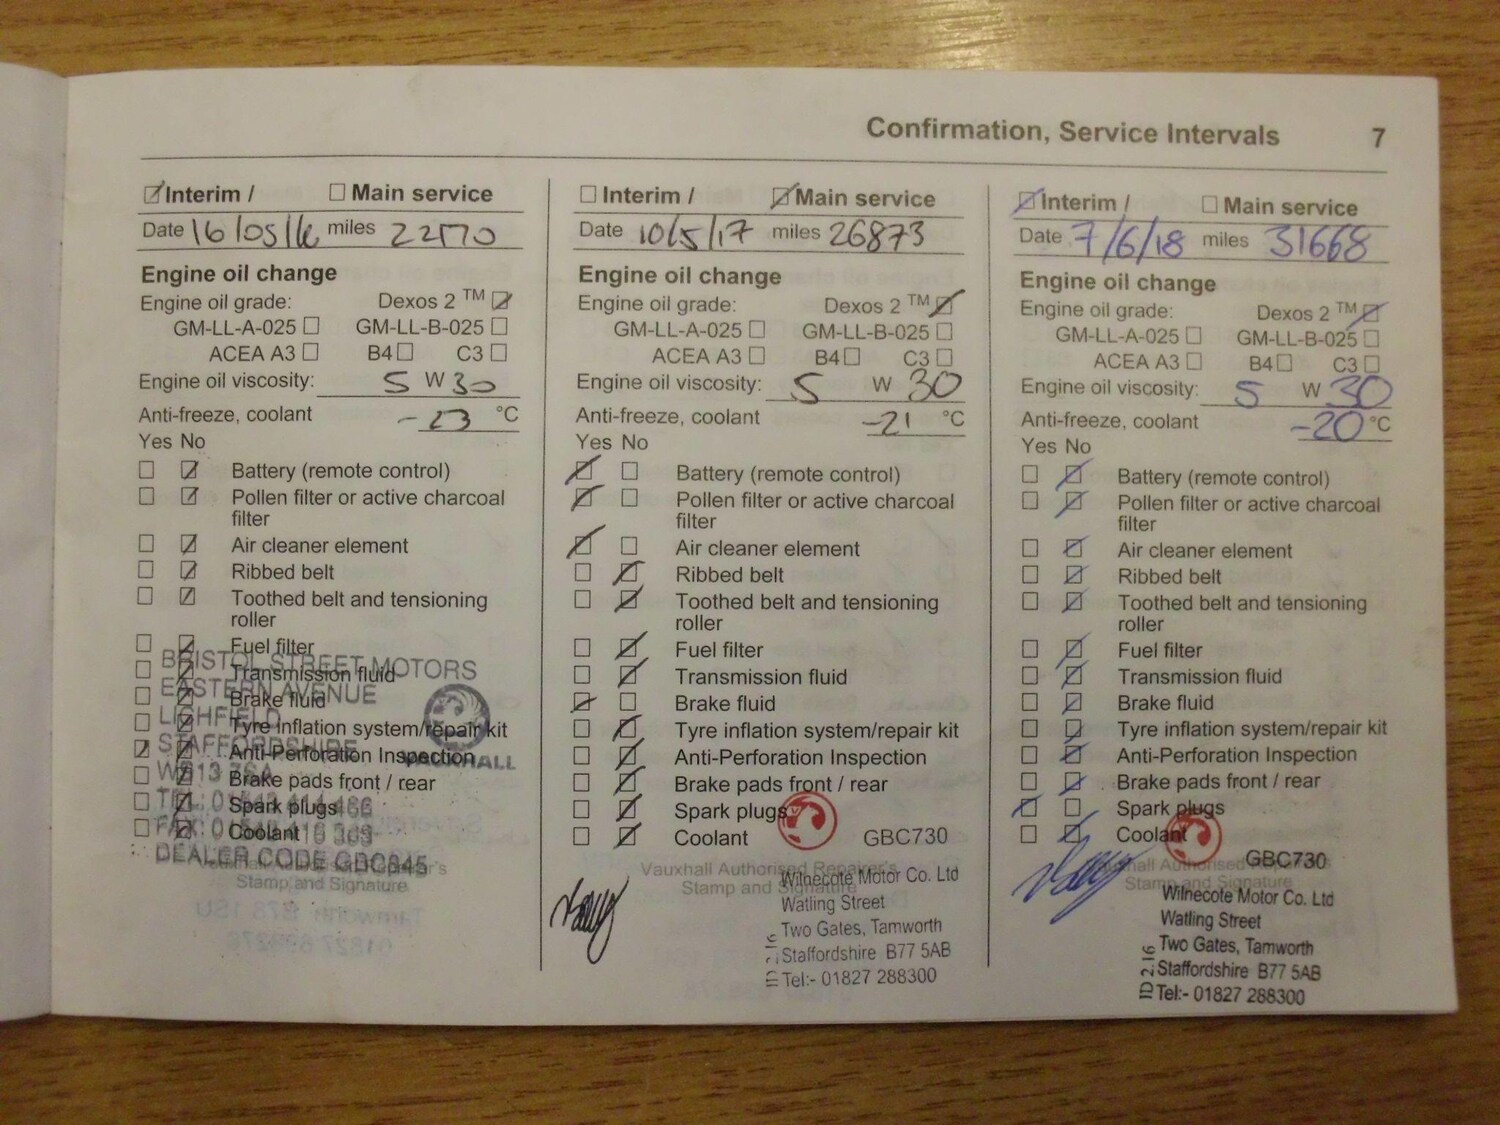 Confirmation, Service Intervals 7
Interim / Main service
Date 16/05/16 miles 22170
Engine oil change
Engine oil grade: Dexos 2 TM
GM-LL-A-025 GM-LL-B-025
ACEA A3 B4 C3
Engine oil viscosity: 5 W 30
Anti-freeze, coolant -23 °C
Yes No
Battery (remote control)
Pollen filter or active charcoal
filter
Air cleaner element
Ribbed belt
Toothed belt and tensioning
roller
Fuel filter
Transmission fluid
Brake fluid
Tyre inflation system/repair kit
Anti-Perforation Inspection
Brake pads front / rear
Spark plugs
Coolant
Stamp and Signature
BRISTOL STREET MOTORS
EASTERN AVENUE
LICHFIELD
STAFFORDSHIRE
VAUXHALL
DEALER CODE GBC645
Interim / Main service
Date 10/5/17 miles 26873
Engine oil change
Engine oil grade: Dexos 2 TM
GM-LL-A-025 GM-LL-B-025
ACEA A3 B4 C3
Engine oil viscosity: 5 W 30
Anti-freeze, coolant -21 °C
Yes No
Battery (remote control)
Pollen filter or active charcoal
filter
Air cleaner element
Ribbed belt
Toothed belt and tensioning
roller
Fuel filter
Transmission fluid
Brake fluid
Tyre inflation system/repair kit
Anti-Perforation Inspection
Brake pads front / rear
Spark plugs
Coolant
GBC730
Vauxhall Authorised Repairer's
Stamp and Signature
Wilnecote Motor Co. Ltd
Watling Street
Two Gates, Tamworth
Staffordshire B77 5AB
Tel:- 01827 288300
Interim / Main service
Date 7/6/18 miles 31668
Engine oil change
Engine oil grade: Dexos 2 TM
GM-LL-A-025 GM-LL-B-025
ACEA A3 B4 C3
Engine oil viscosity: 5 W 30
Anti-freeze, coolant -20 °C
Yes No
Battery (remote control)
Pollen filter or active charcoal
filter
Air cleaner element
Ribbed belt
Toothed belt and tensioning
roller
Fuel filter
Transmission fluid
Brake fluid
Tyre inflation system/repair kit
Anti-Perforation Inspection
Brake pads front / rear
Spark plugs
Coolant
GBC730
Vauxhall Authorised Repairer's
Stamp and Signature
Wilnecote Motor Co. Ltd
Watling Street
Two Gates, Tamworth
Staffordshire B77 5AB
Tel:- 01827 288300
ID 216